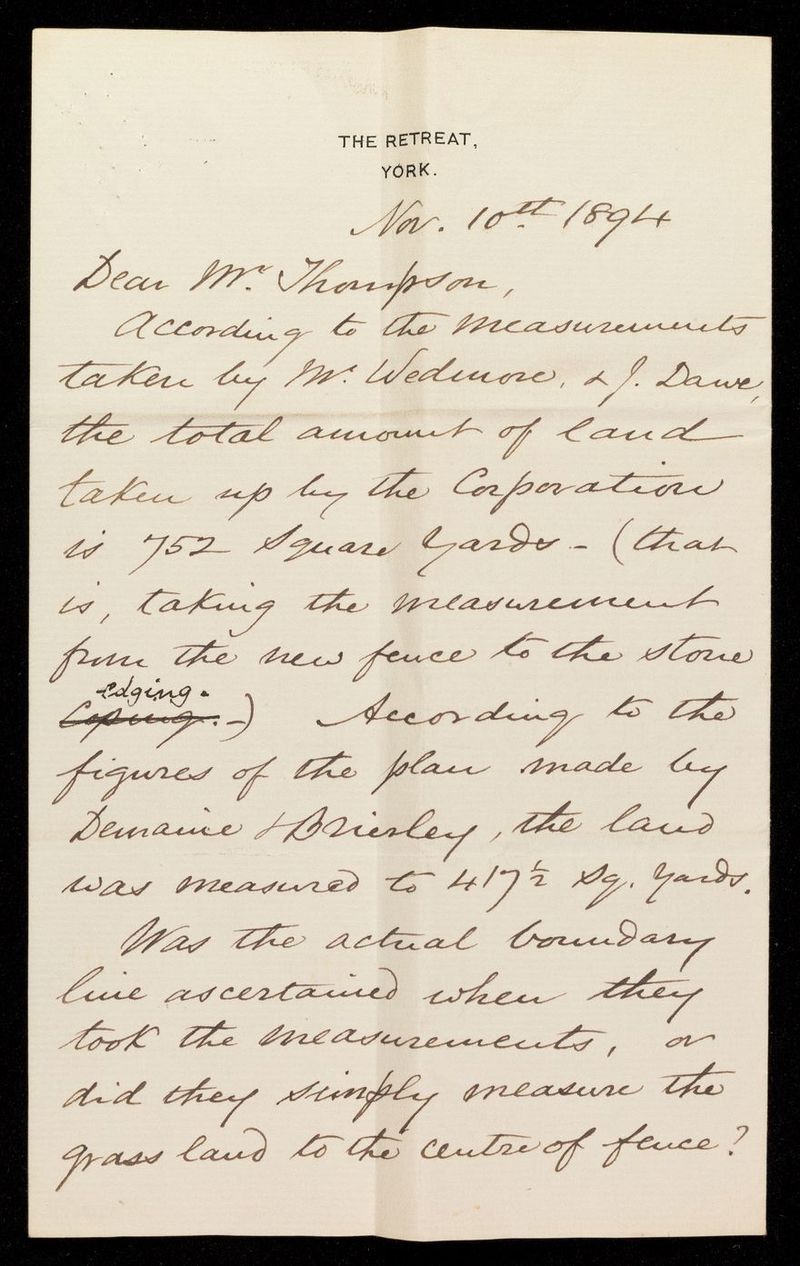 THE RETREAT,
YORK.
Nov. 10th 1894
Dear Mr. Thompson,
According to the measurements
taken by Mr. Wedmore, & J. Dawe,
the total amount of land
taken up by the Corporation
is 752 Square Yards - (that
is, taking the measurement
from the new fence to the stone
edging.
Coping. -) According to the
figures of the plan made by
Demaine & Brierley, the land
was measured to 417½ Sq. Yards.
Was the actual boundary
line ascertained when they
took the measurements, or
did they simply measure the
grass land to the centre of fence?